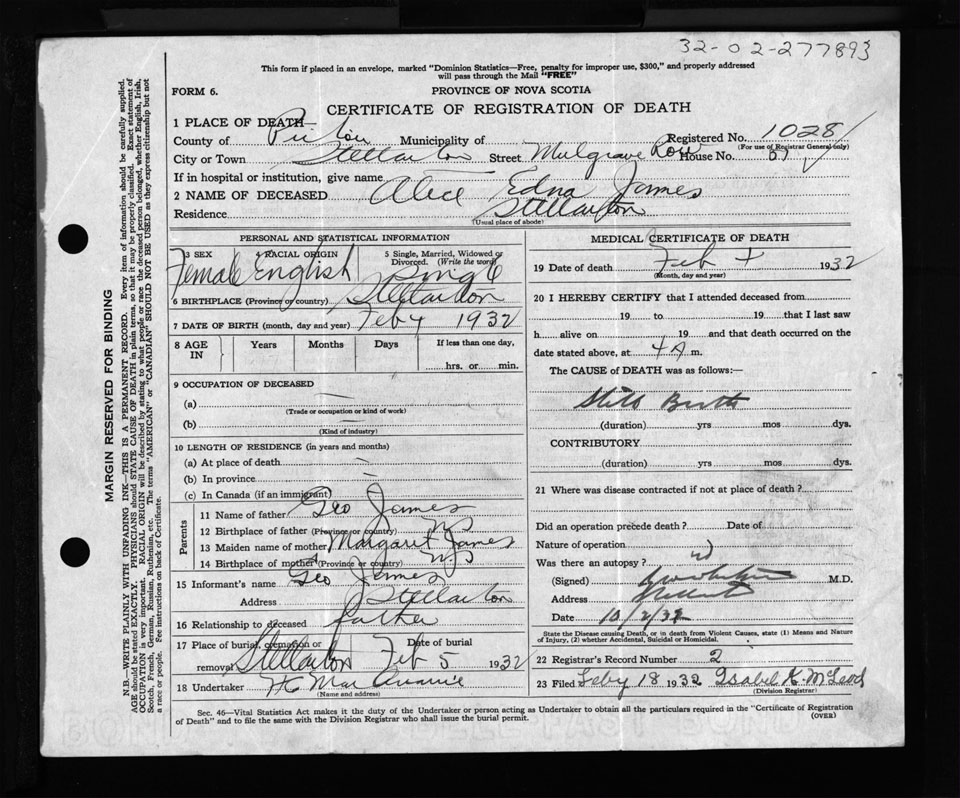 32-02-277893
This form if placed in an envelope, marked "Dominion Statistics—Free, penalty for improper use, $300," and properly addressed
will pass through the Mail "FREE"
FORM 6.
PROVINCE OF NOVA SCOTIA
CERTIFICATE OF REGISTRATION OF DEATH
1 PLACE OF DEATH
County of Pictou Municipality of Registered No. 1028
(For use of Registrar General only)
City or Town Stellarton Street Mulgrave Row House No. 67
If in hospital or institution, give name
2 NAME OF DECEASED Alice Edna James
Residence Stellarton
(Usual place of abode)
PERSONAL AND STATISTICAL INFORMATION
3 SEX 4 RACIAL ORIGIN 5 Single, Married, Widowed or Divorced. (Write the word)
Female English Single
6 BIRTHPLACE (Province or country) Stellarton
7 DATE OF BIRTH (month, day and year) Feby 4 1932
8 AGE IN Years Months Days If less than one day,
hrs. or min.
9 OCCUPATION OF DECEASED
(a)
(Trade or occupation or kind of work)
(b)
(Kind of industry)
10 LENGTH OF RESIDENCE (in years and months)
(a) At place of death
(b) In province
(c) In Canada (if an immigrant)
Parents
11 Name of father Geo James
12 Birthplace of father (Province or country) NS
13 Maiden name of mother Margaret James
14 Birthplace of mother (Province or country) NS
15 Informant's name Geo James
Address Stellarton
16 Relationship to deceased father
17 Place of burial, cremation or removal Stellarton Date of burial Feb 5 1932
18 Undertaker
(Name and address)
MEDICAL CERTIFICATE OF DEATH
19 Date of death Feb 1932
(Month, day and year)
20 I HEREBY CERTIFY that I attended deceased from
19 to 19 that I last saw
h alive on 19 and that death occurred on the
date stated above, at 4 A m.
The CAUSE of DEATH was as follows:—
Still Birth
(duration) yrs mos dys.
CONTRIBUTORY
(duration) yrs mos dys.
21 Where was disease contracted if not at place of death?
Did an operation precede death? Date of
Nature of operation
Was there an autopsy?
(Signed) M.D.
Address
Date 10/2/32
State the Disease causing Death, or in death from Violent Causes, state (1) Means and Nature
of Injury, (2) whether Accidental, Suicidal or Homicidal.
22 Registrar's Record Number 2
23 Filed Feby 18 1932 Isabel K. McLeod
(Division Registrar)
Sec. 46—Vital Statistics Act makes it the duty of the Undertaker or person acting as Undertaker to obtain all the particulars required in the "Certificate of Registration
of Death" and to file the same with the Division Registrar who shall issue the burial permit.
(OVER)
MARGIN RESERVED FOR BINDING
N.B.—WRITE PLAINLY WITH UNFADING INK—THIS IS A PERMANENT RECORD. Every item of information should be carefully supplied.
AGE should be stated EXACTLY. PHYSICIANS should STATE CAUSE OF DEATH in plain terms, so that it may be properly classified. Exact statement of
OCCUPATION is very important. RACIAL ORIGIN will be described by stating to what people or race the deceased person belonged, whether English, Irish,
Scotch, French, German, Russian, Ruthenian, etc. The terms "AMERICAN" or "CANADIAN" SHOULD NOT BE USED as they express citizenship but not
a race or people. See instructions on back of Certificate.